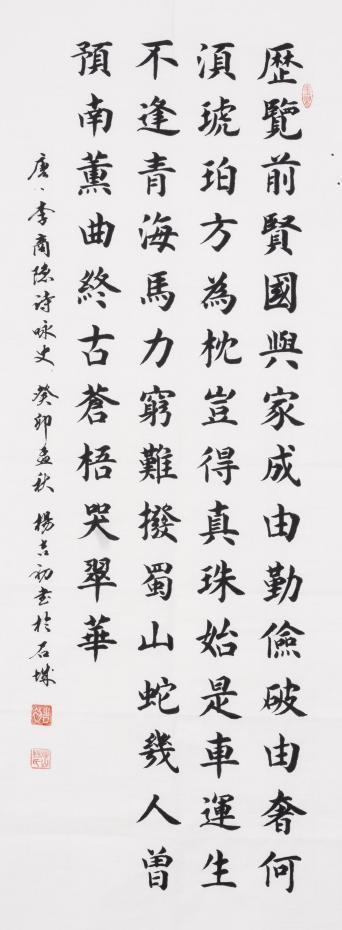 歷覽前賢國與家成由勤儉破由奢何
須琥珀方為枕豈得真珠始是車運生
不逢青海馬力窮難撥蜀山蛇幾人曾
預南薰曲終古蒼梧哭翠華
唐、李商隐诗咏史 癸卯孟秋 楊吉初书於石城